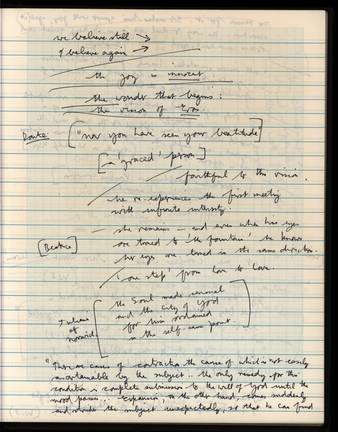 we believe still →
I believe again →
the joy is innocent
the wonder that begins:
the vision of Eros
Dante: ["now you have seen your beatitude"]
[- a 'graced' person]
faithful to this vision.
he re-experiences the first meeting
with infinite intensity.
[Beatrice] she remains - and even when his eyes
are turned to the fountain' he knows
her eyes are turned in the same direction.
'one step' from love to love.
the Soul made eternal
and the City of God
for him ordained
in the self-same point.
"There are cases of contraction the cause of which is not easily
ascertainable by the subject .. the only remedy for this
condition is complete submission to the will of God until the
mood passes. Expansion, on the other hand, comes suddenly
and the subject unexpectedly, so that he can find